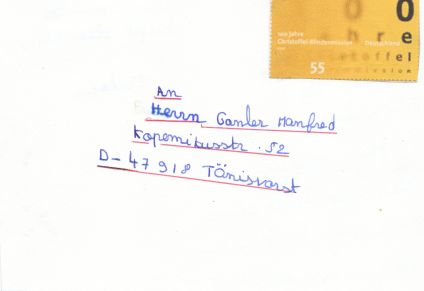 100 Jahre
Christoffel-Blindenmission Deutschland
55
An
Herrn Ganler Manfred
Kopernikusstr. 52
D- 47918 Tönisvorst